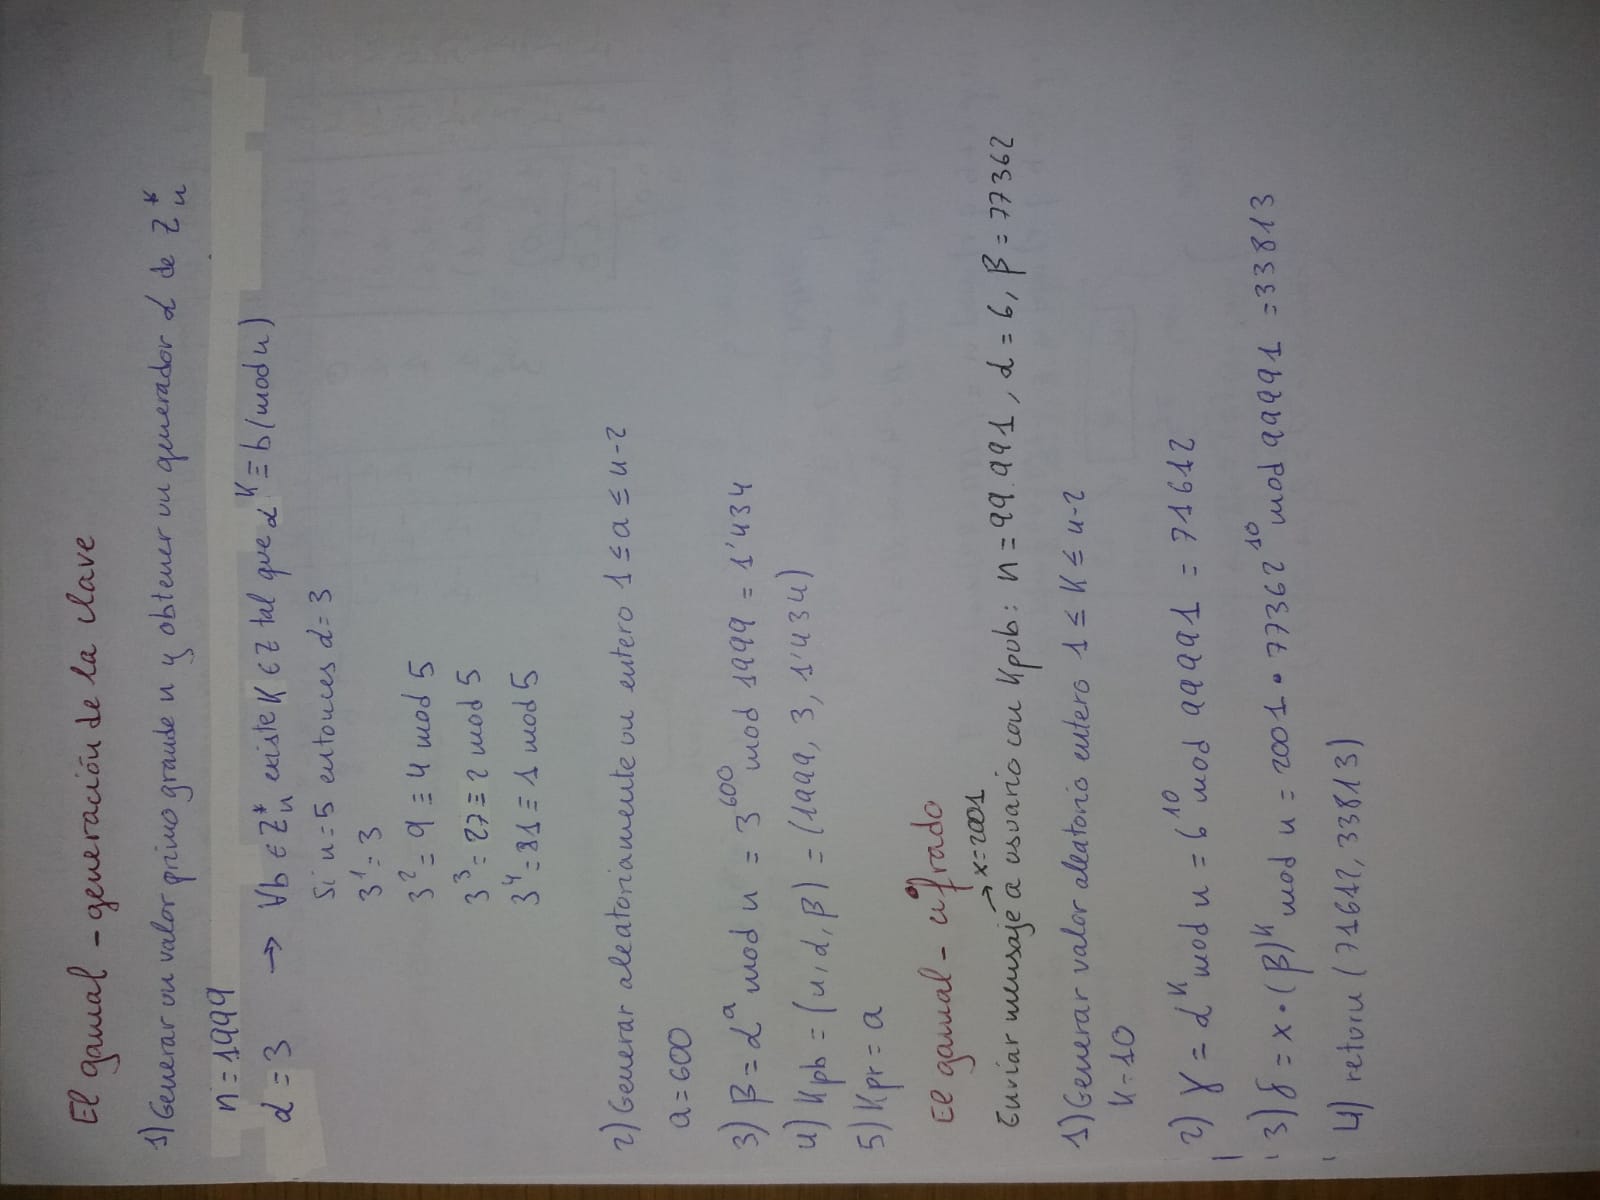 El gamal - generación de la clave
1) Generar un valor primo grande n y obtener un generador α de Z*n
n = 1999
α = 3 → ∀b ∈ Z*n existe K ∈ Z tal que α^K ≡ b (mod n)
Si n = 5 entonces α = 3
3^1 = 3
3^2 = 9 ≡ 4 mod 5
3^3 = 27 ≡ 2 mod 5
3^4 = 81 ≡ 1 mod 5
2) Generar aleatoriamente un entero 1 ≤ a ≤ n-2
a = 600
3) β = α^a mod n = 3^600 mod 1999 = 1'434
4) Kpb = (n, α, β) = (1999, 3, 1'434)
5) Kpr = a
El gamal - cifrado
→ x = 2001
Enviar mensaje a usuario con Kpub: n = 99.991, α = 6, β = 77362
1) Generar valor aleatorio entero 1 ≤ K ≤ n-2
K = 10
2) γ = α^K mod n = 6^10 mod 99991 = 71612
3) δ = x · (β)^K mod n = 2001 · 77362^10 mod 99991 = 33813
4) return (71612, 33813)